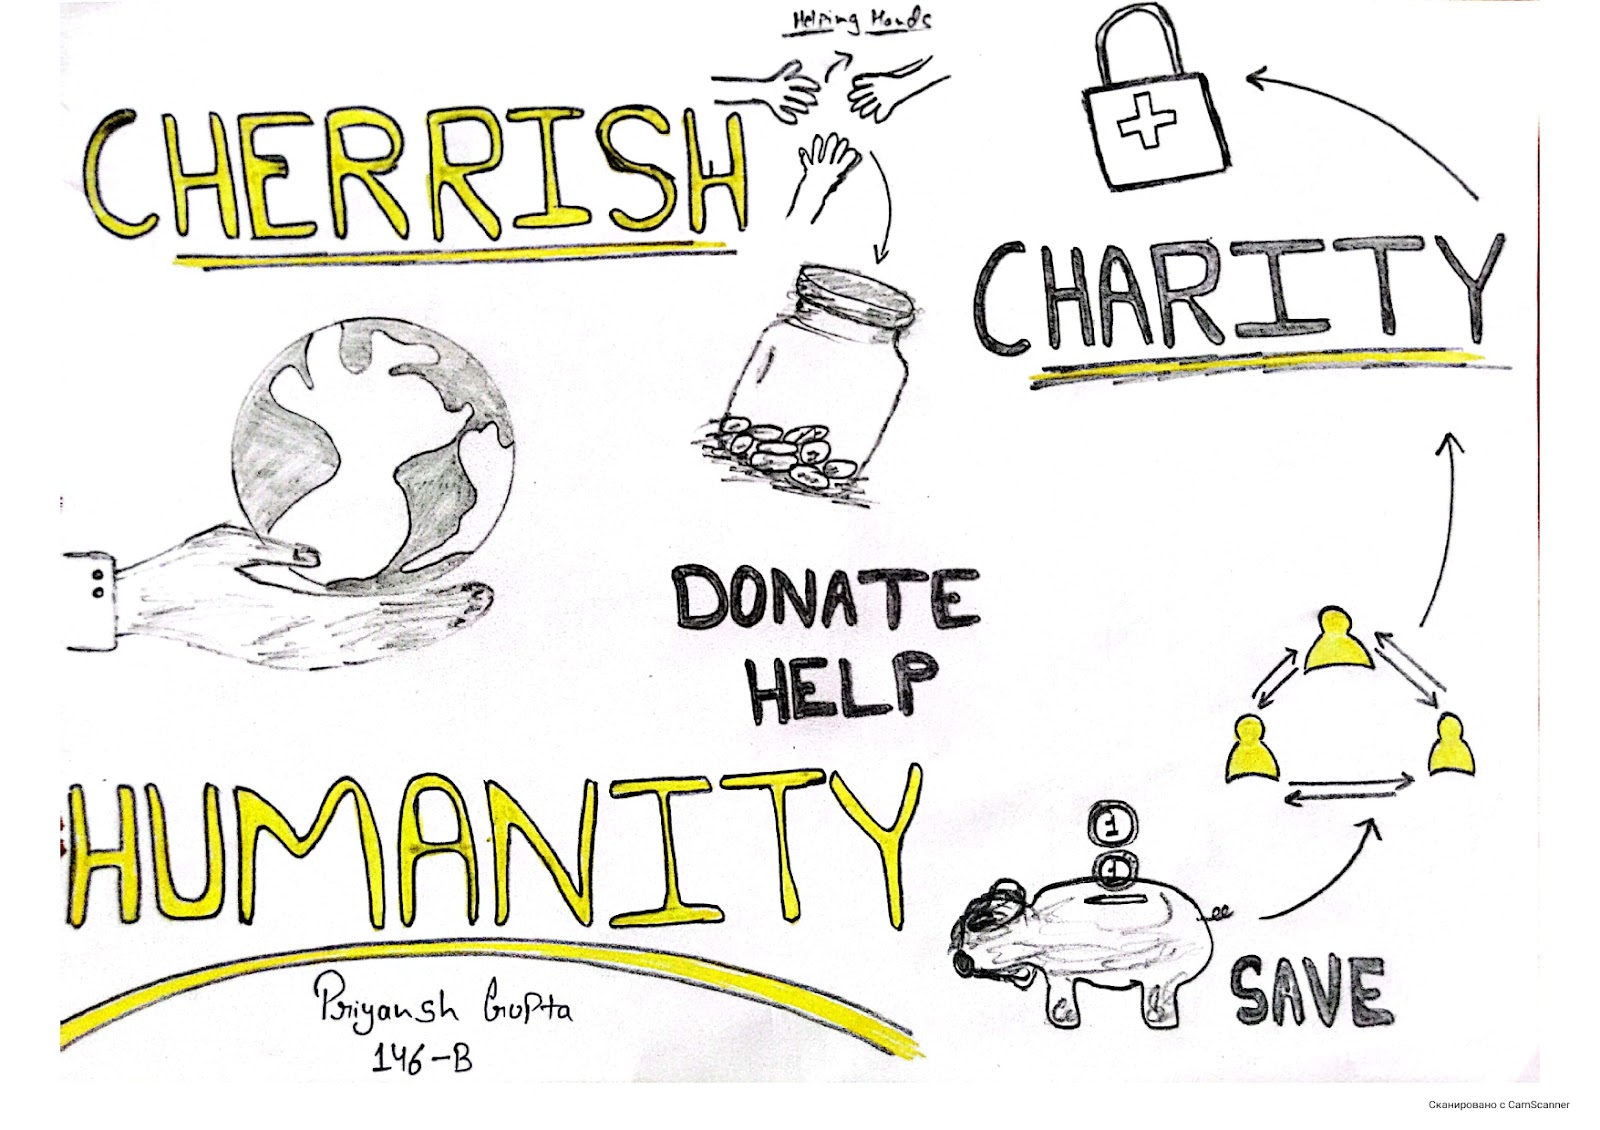 Helping Hands
CHERRISH
CHARITY
DONATE
HELP
HUMANITY
1
1
SAVE
Priyansh Gupta
146-B
Сканировано с CamScanner